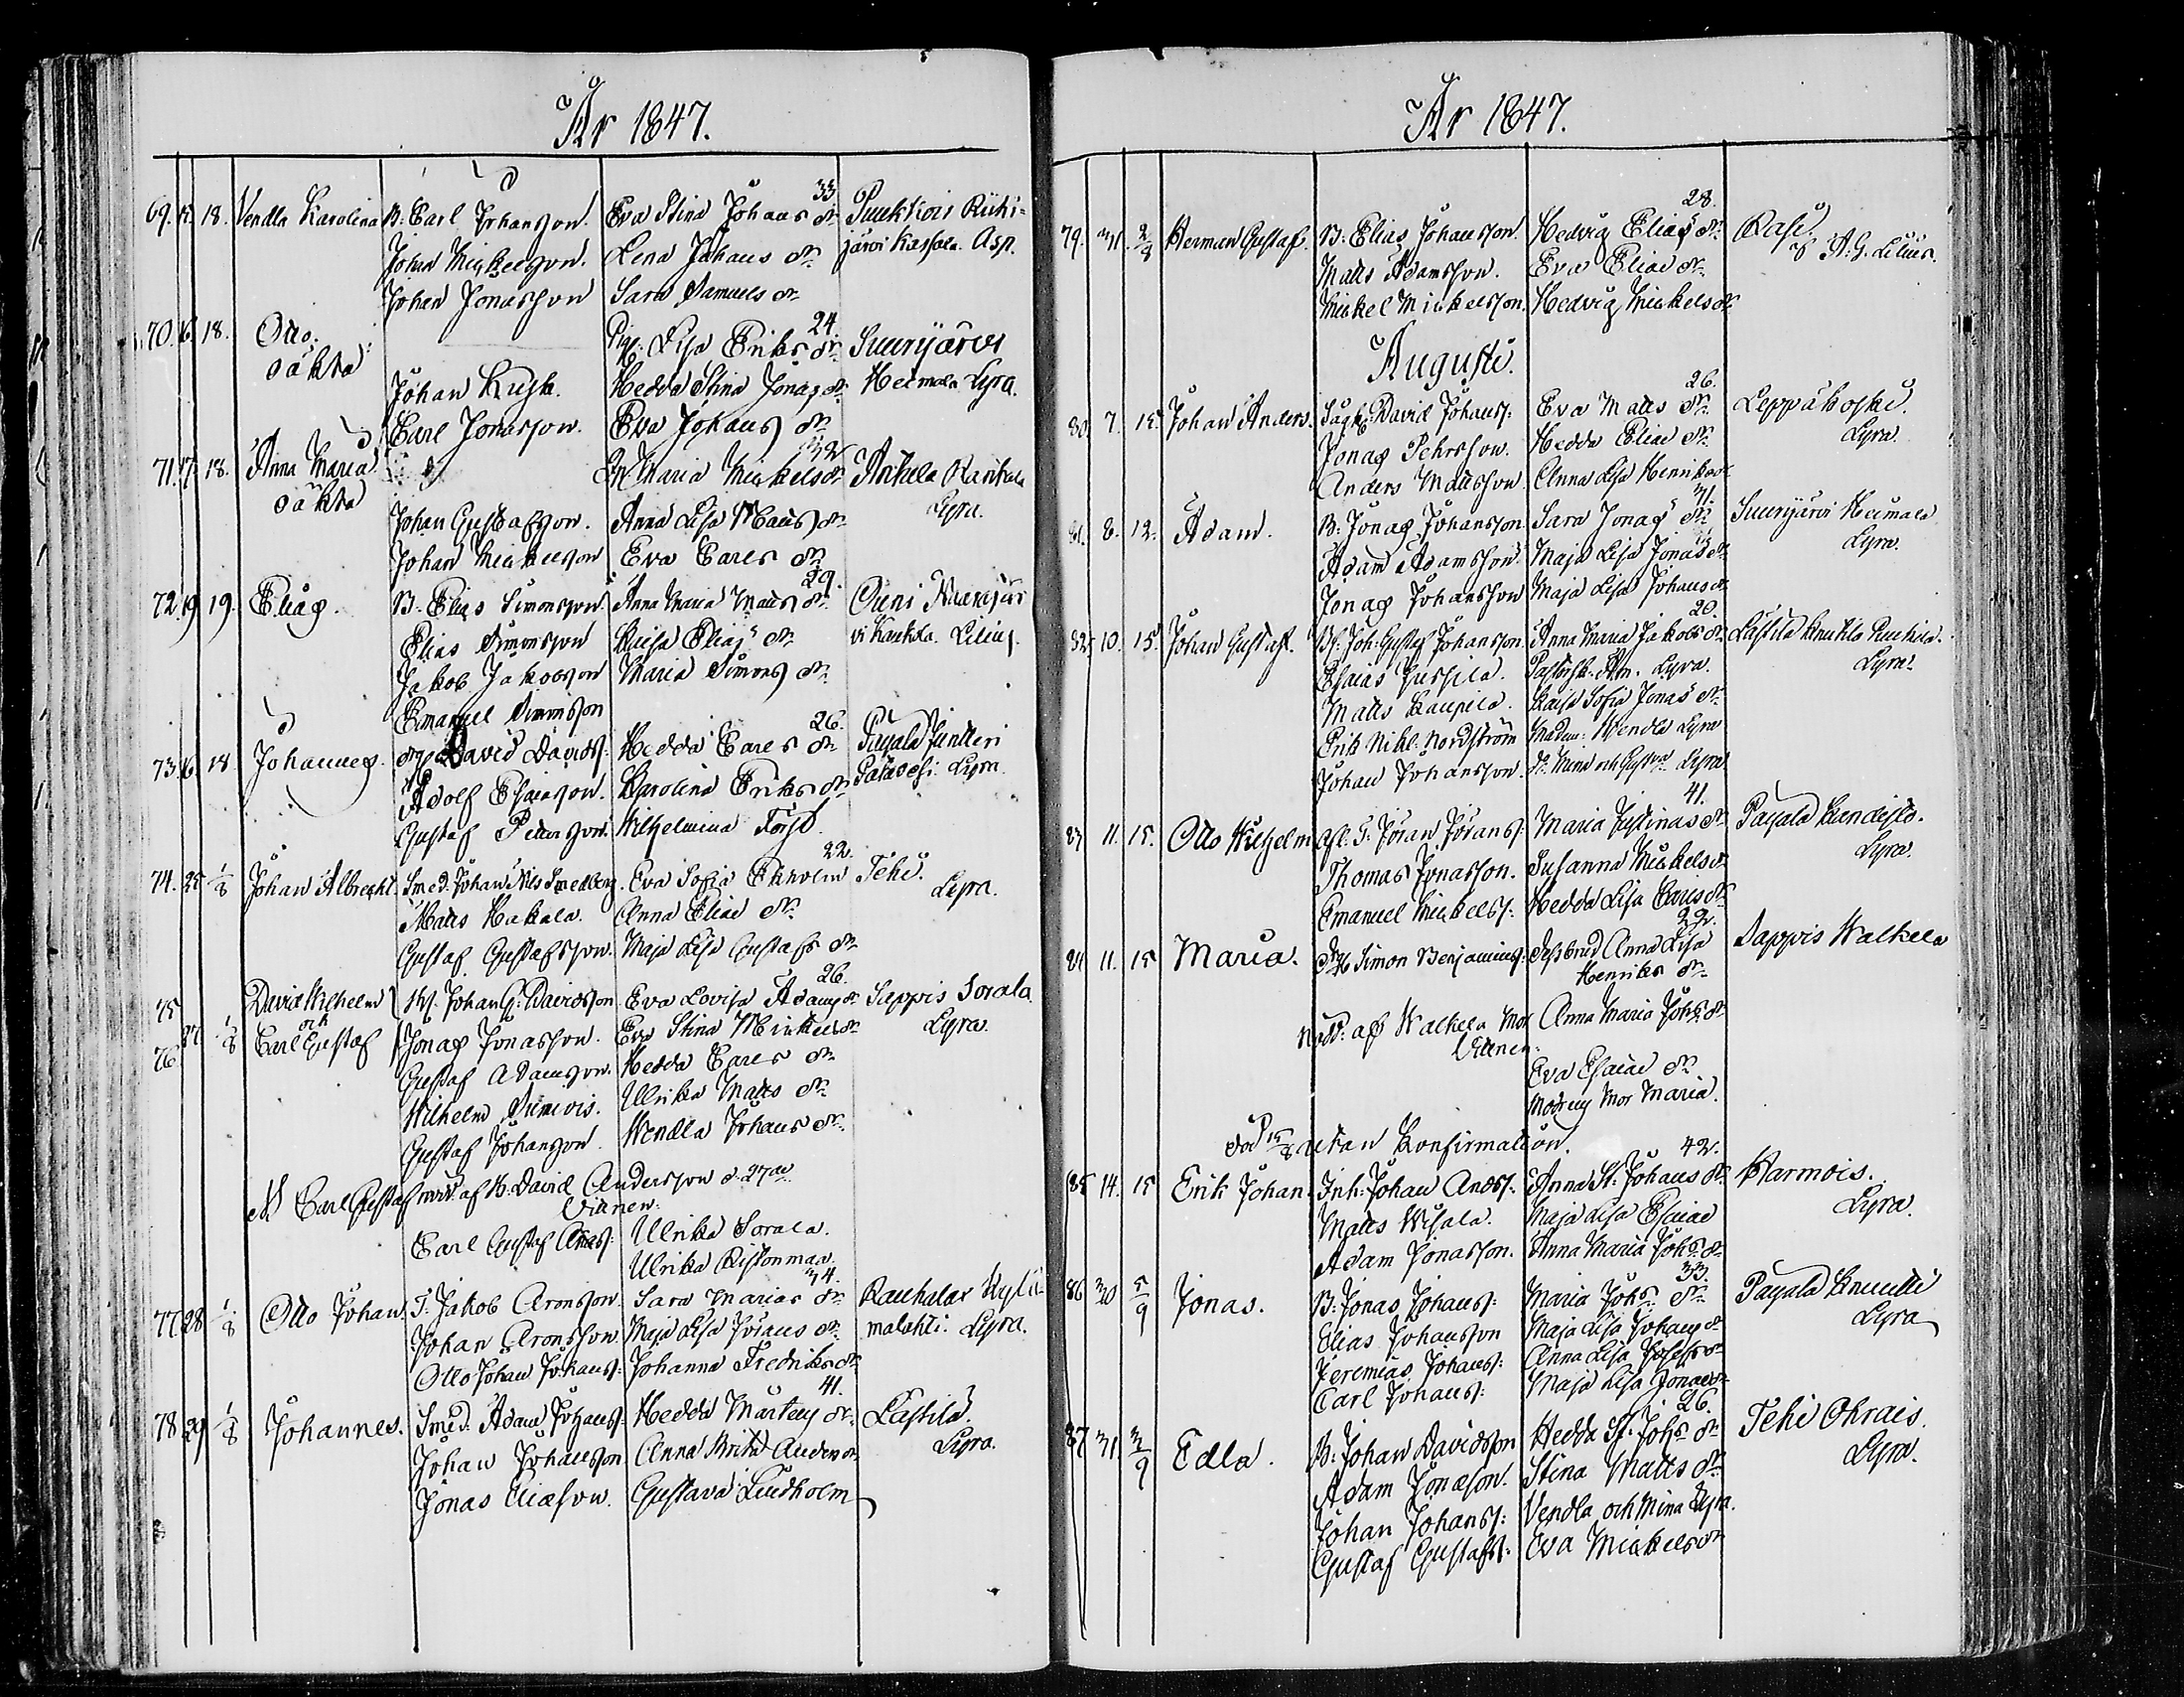 År 1847.
69. 12. 18. Vendla Karolina B: Carl Johansson. Eva Stina Johans dr 33 Puukkois Riihi-
Johan Mickelsson. Lena Johans dr järvi Kassala. Asp.
Johan Jonasson Sara Samuels dr
70. 16. 18. Otto. Pig. Lisa Eriks dr 24. Suurijärvi
oäkta Johan Kusk. Hedda Stina Jonas dr Heimala Lyra.
Carl Jonasson. Eva Johans dr
71. 17. 18. Anna Maria Maria Mickels dr 32 Anhela Rankala
oäkta Johan Gustafsson. Anna Lisa Matts dr Lyra.
Johan Mickelsson Eva Carls dr
72. 19. 19. Elias. B. Elias Simonsson. Anna Maria Matts dr 29.
Elias Simonsson Lovisa Elias dr vi Kaukola. Lilius.
Jakob Jakobsson Maria Simons dr
Emanuel Simonsson
73. 16. 18. Johannes. David Davids: Hedda Carls dr 26. Payala Juntteri
Adolf Esaiasson. Karolina Eriks dr Lyra.
Gustaf Petersson. Wilhelmina Forss.
74. 25 1/8 Johan Albrecht. Smed. Johan Nils Smedberg. Eva Sofia Ekholm 22. Tehi.
Matts Hakala. Anna Elias dr Lyra.
Gustaf Gustafsson. Maja Lisa Gustafs dr
75 David Wilhelm Johan G: Davidsson Eva Lovisa Adams dr 26. Sappis Sorala
76. 27 1/8 och Carl Gustaf Jonas Jonasson. Eva Stina Mickels dr Lyra.
Gustaf Adamsson. Hedda Carls dr
Wilhelm Ulrika Matts dr
Gustaf Johansson. Wendla Johans dr
Carl Gustaf af B. David Andersson d. 27de
Vittnen:
Carl Gustaf Anders: Ulrika Sorala.
Ulrika
77. 28 1/8 Otto Johan. T. Jakob Aronsson. Sara Marias dr 34. Rauhalax Kylä-
Johan Aronsson. Maja Lisa Johans dr malahti. Lyra.
Otto Johan Johans: Johanna Fredriks dr
78 29 1/8 Johannes. Smed. Adam Johans: Hedda Mårtens dr 41. Lastila.
Johan Johansson Anna Brita Anders dr Lyra.
Jonas Eliasson. Gustava Lindholm
År 1847.
79. 31. Herman Gustaf. B: Elias Johansson. Hedvig Elias dr 28. Rasi.
Matts Adamsson. Eva Elias dr A. G. Lilius.
Mickel Mickelsson. Hedvig Mickels dr
Augusti.
80. 7. 15. Johan Anders. David Johans: Eva Matts dr 26. Leppäkoski.
Jonas Pehrsson. Hedda Elias dr Lyra.
Anders Mattsson. Anna Lisa Henriks dr
81. 8. 12. Adam. B: Jonas Johansson Sara Jonas dr 31. Suurijärvi Heimala
Adam Adamsson. Maja Lisa Jonas dr Lyra.
Jonas Johansson Maja Lisa Johans dr
82. 10. 15. Johan Gustaf. Joh: Gustaf Johansson Anna Maria Jakobs dr 20. Lastila
Esaias Jussila. Lyra. Lyra.
Matts Kaupila. Sofia Jonas dr
Erik Nikl: Nordström Wendla Lyra
Johan Johansson. Mina och Lyra
83 11. 15. Otto Wilhelm Jöran Jörans: Maria Justinas dr 41. Payala
Thomas Jonasson. Susanna Mickels dr Lyra.
Emanuel Mickels: Hedda Lisa Carls dr
84 11. 15 Maria. Simon Benjamins: Anna Lisa 22. Sappis Walkela
Henriks dr
Nöd: af Walkela Mor Anna Maria Johs: dr
Vittnen:
Eva Esaias dr
Modrens Mor Maria.
Död 15/8 utan Konfirmation.
85 14. 15 Erik Johan. Inh: Johan Anders: Anna St: Johans dr 42. Warmois.
Matts Maja Lisa Esaias Lyra.
Adam Jonasson. Anna Maria Johs: dr
86 30 5/9 Jonas. B: Jonas Johans: Maria Johs: dr 33. Payala Knuutti
Elias Johansson Maja Lisa Johans dr Lyra
Jeremias Johans: Anna Lisa Josefs dr
Carl Johans: Maja Lisa Jonas dr
87 31. 3/9 Edla. B: Johan Davidsson Hedda St: Johs: dr 26. Tehi Ohrais.
Adam Jonasson. Stina Matts dr Lyra.
Johan Johans: Vendla och Mina Lyra.
Gustaf Gustafs: Eva Mickels dr